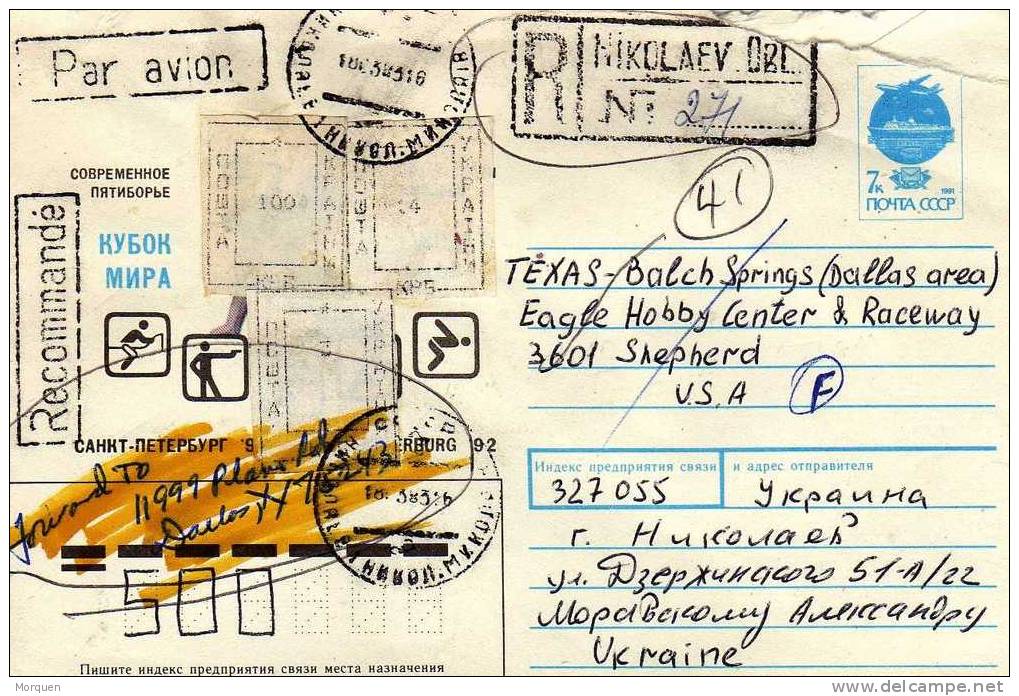 Par avion
18038316
NIKOLAEV. OBL.
R
№ 271
7к
1991
ПОЧТА СССР
СОВРЕМЕННОЕ
ПЯТИБОРЬЕ
КУБОК
МИРА
Recommandé
ПОШТА
100
УКРАЇНА
ПОШТА
УКРАЇНА
41
TEXAS - Balch Springs (Dallas area)
Eagle Hobby Center & Raceway
3601 Shepherd
U.S.A
F
САНКТ-ПЕТЕРБУРГ '9
ERBURG 92
Forward To
11999 Plano Rd
Dallas, TX 75243
Индекс предприятия связи
и адрес отправителя
327055
Украина
г. Николаев
ул. Дзержинского 51-А/22
Моравскому Александру
Ukraine
500
Пишите индекс предприятия связи места назначения
Morquen
delcampe.net